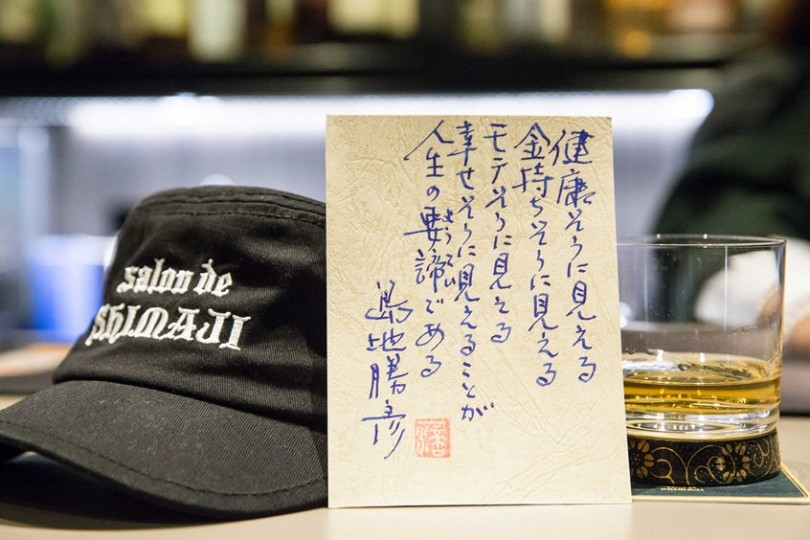 salon de
SHIMAJI
健康そうに見える
金持ちそうに見える
モテそうに見える
幸せそうに見えることが
人生の要諦である
島地勝彦